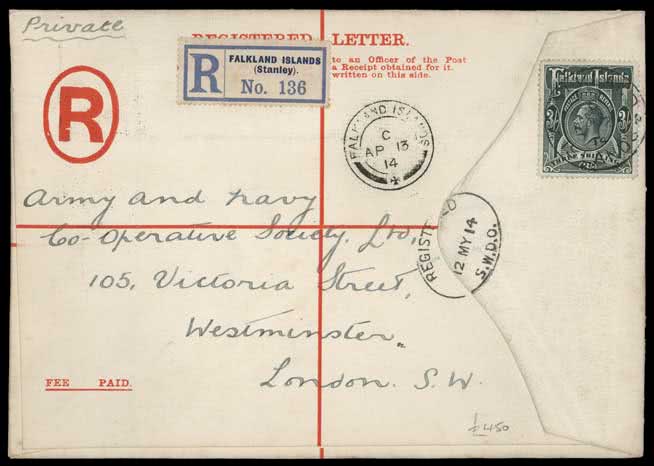 Private
REGISTERED LETTER.
to an Officer of the Post
a Receipt obtained for it.
written on this side.
R
FALKLAND ISLANDS
(Stanley).
No. 136
R
Falkland Islands
FALKLAND ISLANDS
C
AP 13
14
Army and Navy
Co-Operative Society, Ltd,
105, Victoria Street,
Westminster,
London. S.W.
REGISTERED
12 MY 14
S.W.D.O.
FEE PAID.
£450